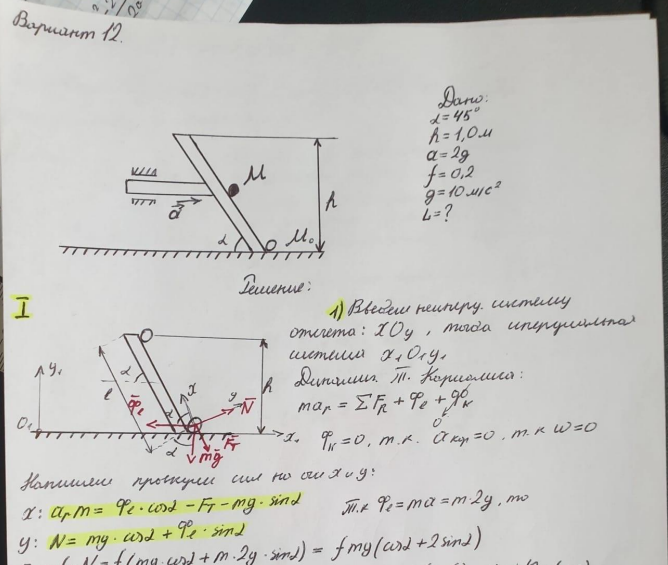 Вариант 12.
Дано:
α=45°
h=1,0м
a=2g
f=0,2
g=10м/с²
L=?
M
h
a
α
M₀
Решение:
I
1) Введем неинерц. систему
отсчета: xOy, тогда инерциальная
система x₁O₁y₁
Динамич. т. Кориолиса:
maᵣ = ΣFₖ + Φₑ + Φₖ
0
Φₖ=0, т.к. aкор=0, т.к ω=0
y₁
l
α
x
y
N
h
Φₑ
α
O₁
Fт
x₁
α
mg
Напишем проекции сил на оси x и y:
x: aᵣm = Φₑ·cosα − Fт − mg·sinα
т.к Φₑ=ma=m·2g, то
y: N = mg·cosα + Φₑ·sinα
N = f(mg·cosα + m·2g·sinα) = fmg(cosα+2sinα)